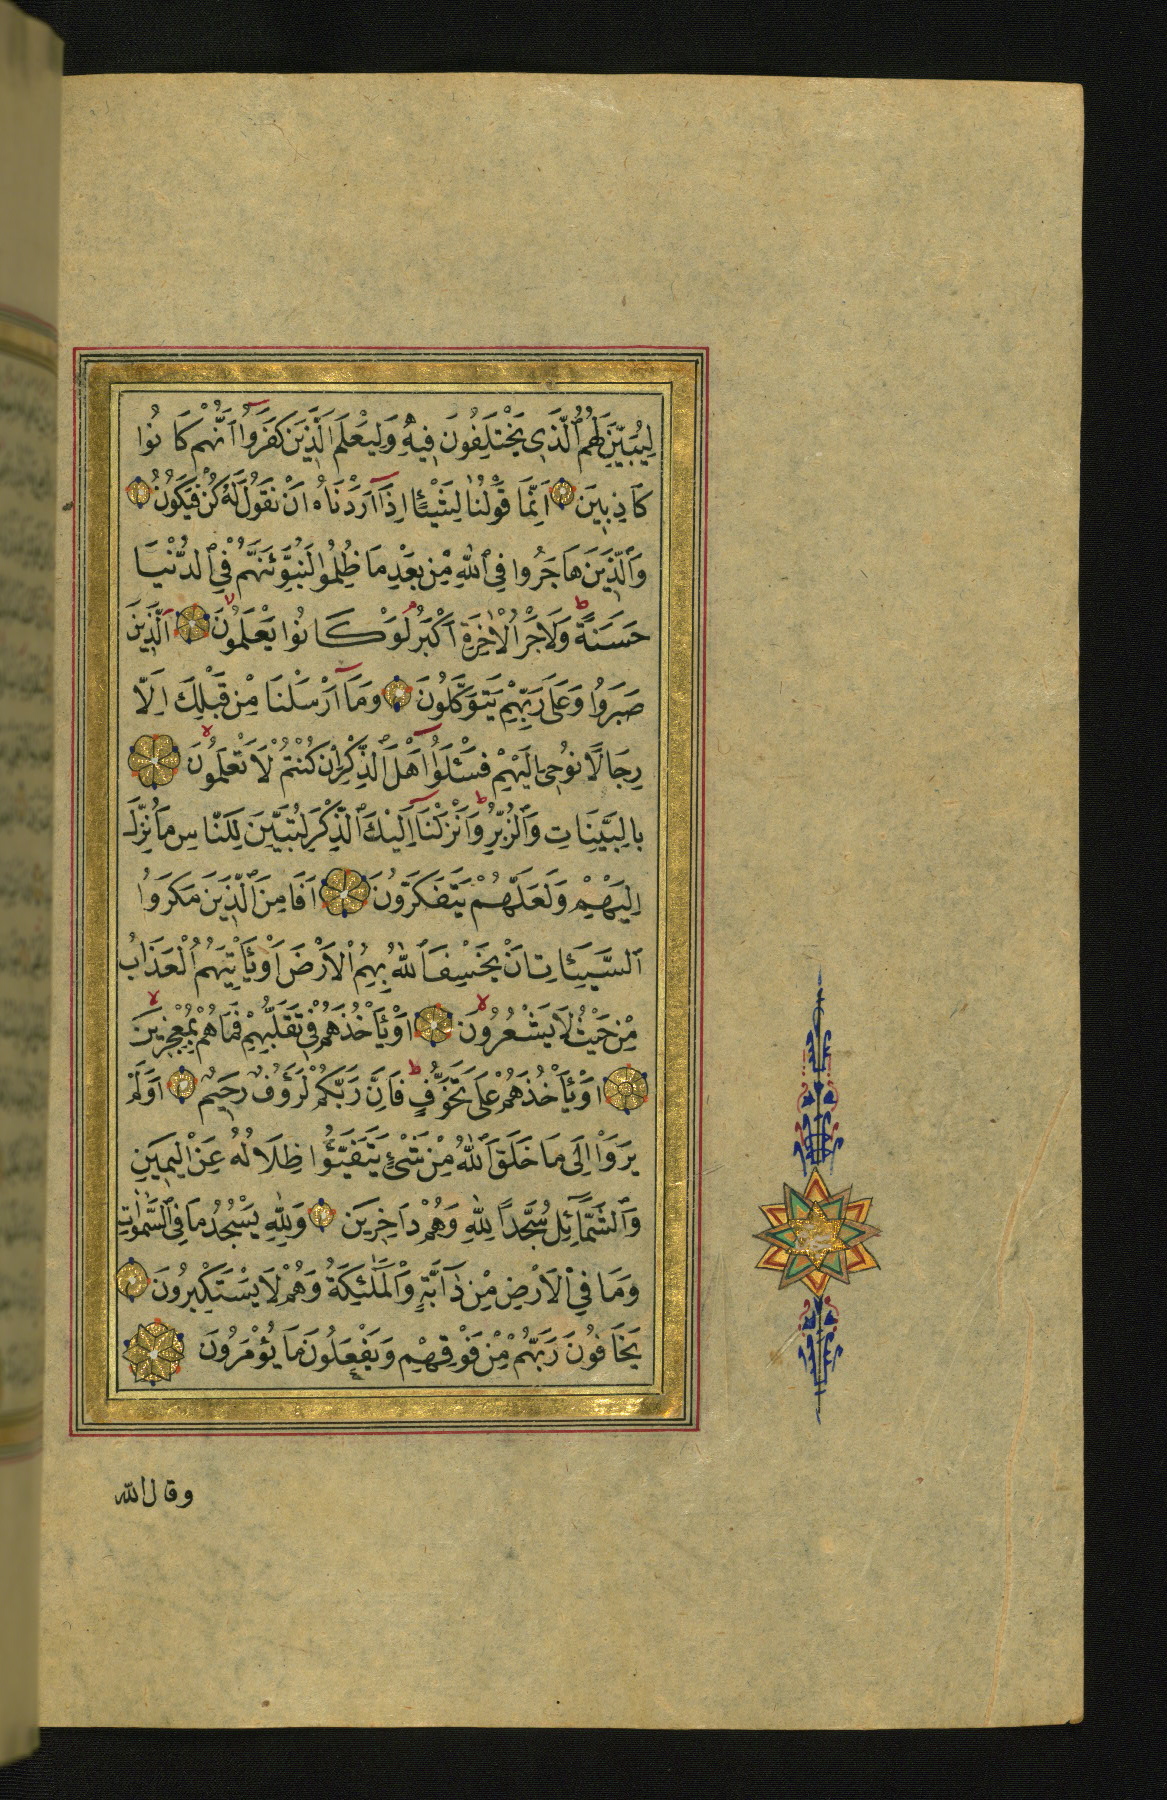 لِيُبَيِّنَ لَهُمُ الَّذِي يَخْتَلِفُونَ فِيهِ وَلِيَعْلَمَ الَّذِينَ كَفَرُوا اَنَّهُمْ كَانُوا
كَاذِبِينَ اِنَّمَا قَوْلُنَا لِشَيْئٍ اِذَا اَرَدْنَاهُ اَنْ نَقُولَ لَهُ كُنْ فَيَكُونُ
وَالَّذِينَ هَاجَرُوا فِي اللّٰهِ مِنْ بَعْدِ مَا ظُلِمُوا لَنُبَوِّئَنَّهُمْ فِي الدُّنْيَا
حَسَنَةً ط وَلَاَجْرُ الْاٰخِرَةِ اَكْبَرُ م لَوْ كَانُوا يَعْلَمُونَ لا اَلَّذِينَ
صَبَرُوا وَعَلَى رَبِّهِمْ يَتَوَكَّلُونَ وَمَا اَرْسَلْنَا مِنْ قَبْلِكَ اِلَّا
رِجَالًا نُوحِي اِلَيْهِمْ فَسْئَلُوا اَهْلَ الذِّكْرِ اِنْ كُنْتُمْ لَا تَعْلَمُونَ لا
بِالْبَيِّنَاتِ وَالزُّبُرِ ط وَاَنْزَلْنَا اِلَيْكَ الذِّكْرَ لِتُبَيِّنَ لِلنَّاسِ مَا نُزِّلَ
اِلَيْهِمْ وَلَعَلَّهُمْ يَتَفَكَّرُونَ اَفَاَمِنَ الَّذِينَ مَكَرُوا
السَّيِّئَاتِ اَنْ يَخْسِفَ اللّٰهُ بِهِمُ الْاَرْضَ اَوْ يَأْتِيَهُمُ الْعَذَابُ
مِنْ حَيْثُ لَا يَشْعُرُونَ لا اَوْ يَأْخُذَهُمْ فِي تَقَلُّبِهِمْ فَمَا هُمْ بِمُعْجِزِينَ لا
اَوْ يَأْخُذَهُمْ عَلَى تَخَوُّفٍ ط فَاِنَّ رَبَّكُمْ لَرَؤُفٌ رَحِيمٌ اَوَلَمْ
يَرَوْا اِلَى مَا خَلَقَ اللّٰهُ مِنْ شَيْءٍ يَتَفَيَّؤُا ظِلَالُهُ عَنِ الْيَمِينِ
وَالشَّمَائِلِ سُجَّدًا لِلّٰهِ وَهُمْ دَاخِرِينَ وَلِلّٰهِ يَسْجُدُ مَا فِي السَّمٰوَاتِ
وَمَا فِي الْاَرْضِ مِنْ دَابَّةٍ وَالْمَلٰئِكَةُ وَهُمْ لَا يَسْتَكْبِرُونَ
يَخَافُونَ رَبَّهُمْ مِنْ فَوْقِهِمْ وَيَفْعَلُونَ مَا يُؤْمَرُونَ
وقال الله